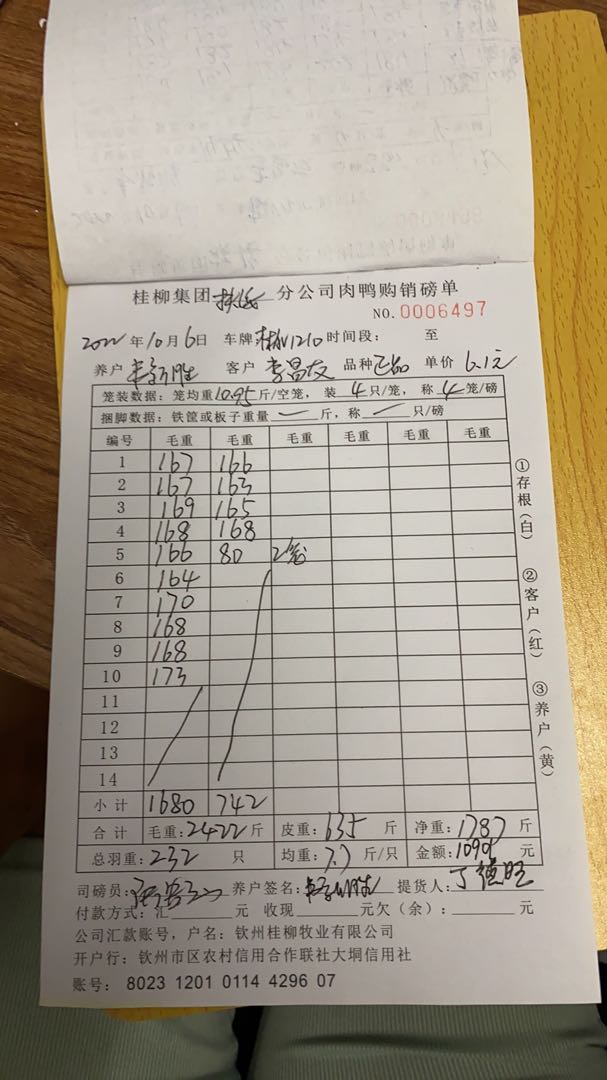 桂柳集团 分公司肉鸭购销磅单
NO.0006497
2022年10月6日 车牌 1210 时间段： 至
养户 客户 李昌友 品种 正品 单价 6.1元
笼装数据：笼均重10.95斤/空笼，装4只/笼，称4笼/磅
捆脚数据：铁筐或板子重量一斤，称一只/磅
编号 毛重 毛重 毛重 毛重 毛重 毛重
1 167 166
2 167 163
3 169 165
4 168 168
5 166 80 2笼
6 164
7 170
8 168
9 168
10 173
11
12
13
14
小计 1680 742
合计 毛重：2422斤 皮重：635斤 净重：1787斤
总羽重：232只 均重：7.7斤/只 金额： 元
司磅员： 养户签名： 提货人：丁德旺
付款方式：汇 元 收现 元欠（余）： 元
公司汇款账号，户名：钦州桂柳牧业有限公司
开户行：钦州市区农村信用合作联社大垌信用社
账号：8023 1201 0114 4296 07
①存根（白）
②客户（红）
③养户（黄）